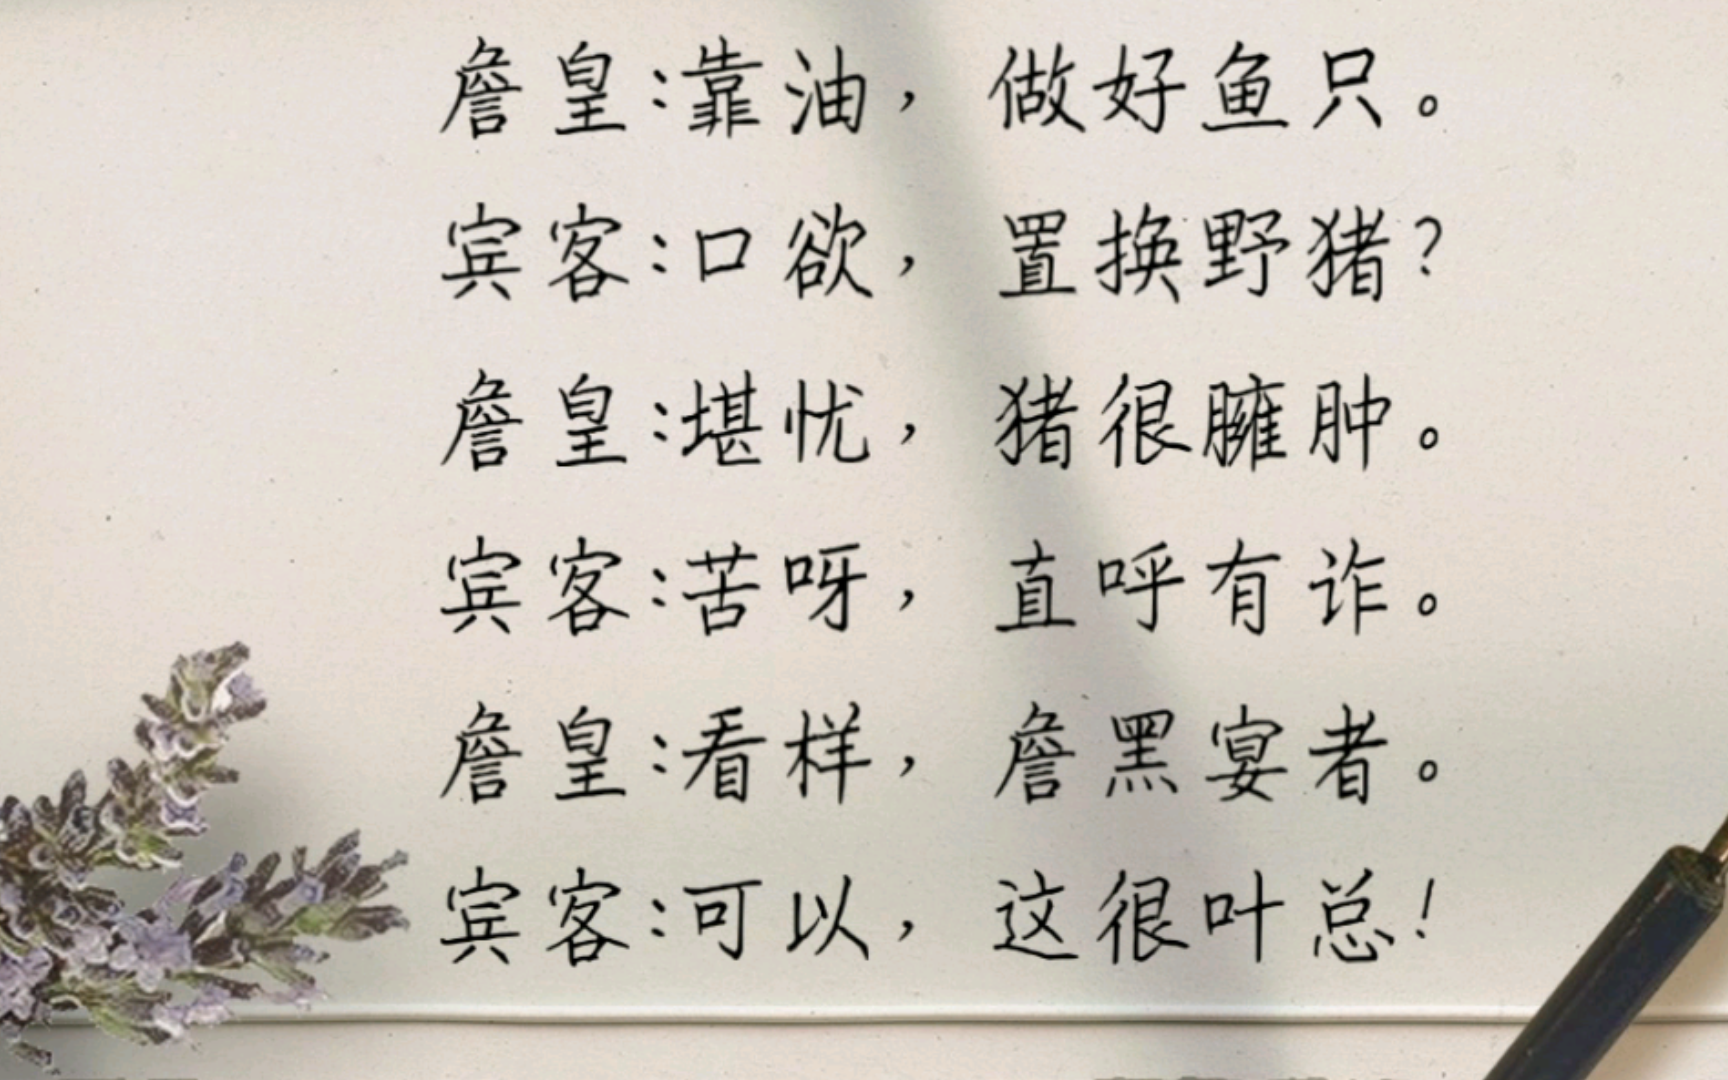 詹皇:靠油，做好鱼只。
宾客:口欲，置换野猪?
詹皇:堪忧，猪很臃肿。
宾客:苦呀，直呼有诈。
詹皇:看样，詹黑宴者。
宾客:可以，这很叶总!